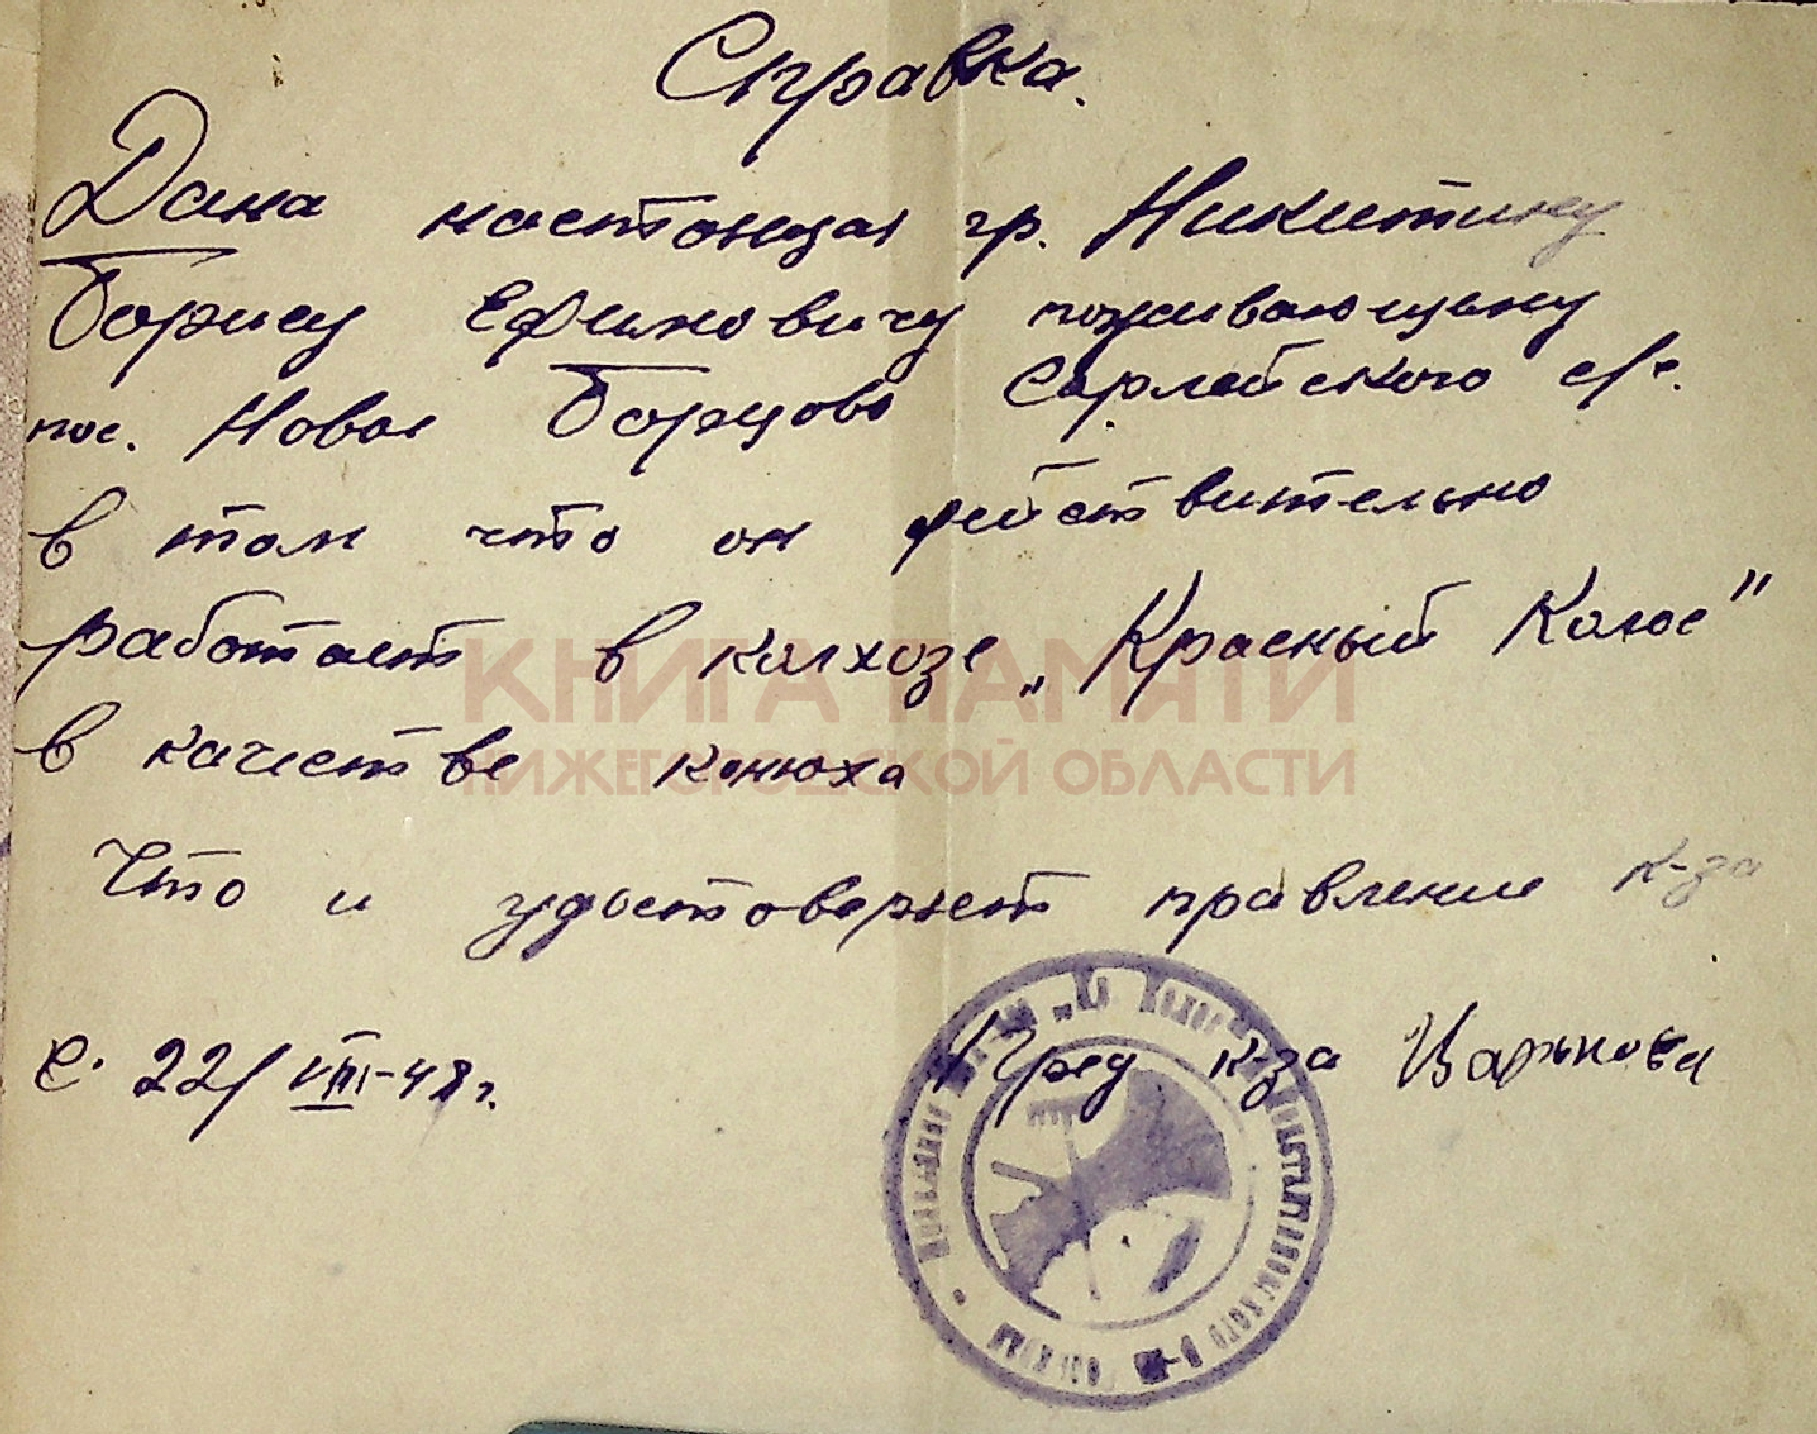 Справка.
Дана настоящая гр. Никитину
Борису Ефимовичу поживающему
пос. Новое Борцово Сарлейского с/с.
в том что он действительно
работает в колхозе „Красный Колос"
в качестве конюха
Что и удостоверяет правление к-за
22/VIII-48 г.
Пред к-за
КНИГА ПАМЯТИ
НИЖЕГОРОДСКОЙ ОБЛАСТИ